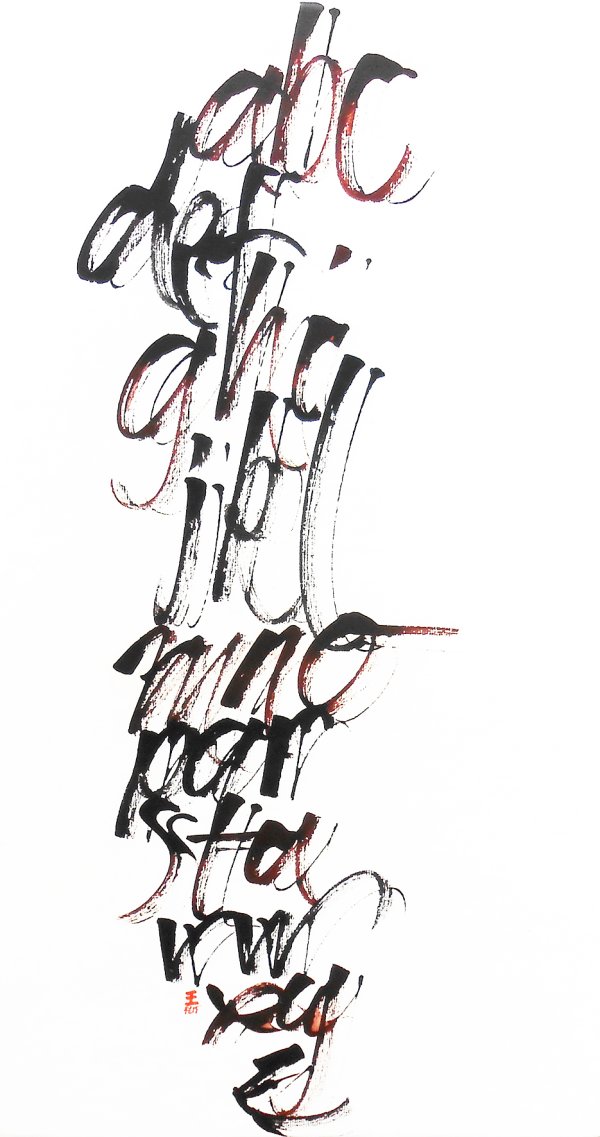 abc
def
ghi
jkl
mno
pqr
stu
vw
王
xy
z